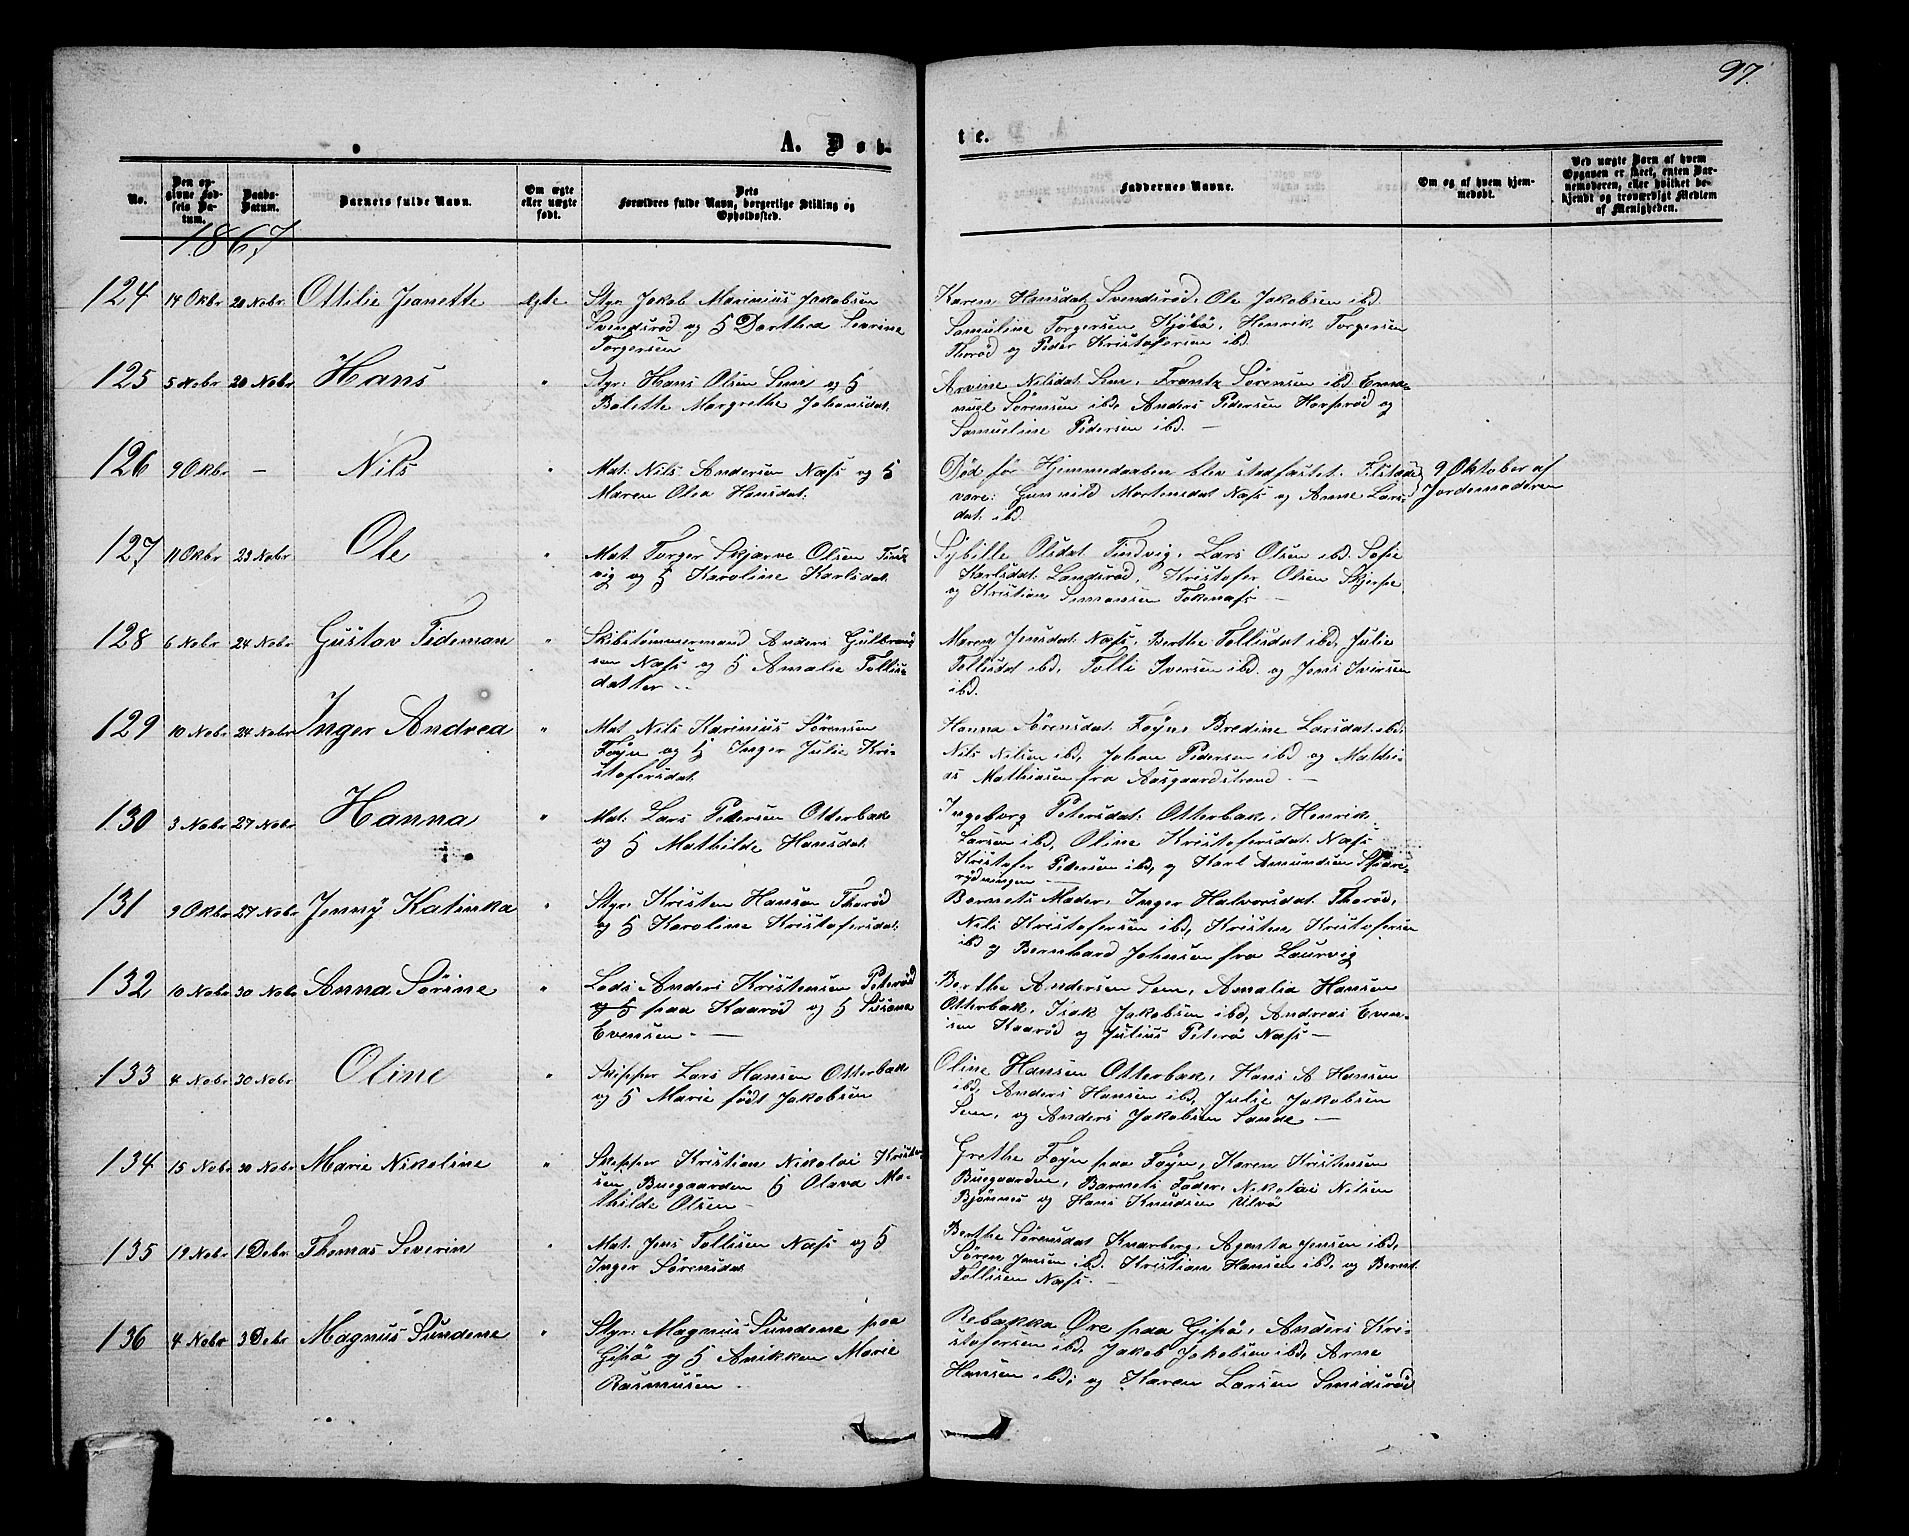 97.
A. Døb-
te.
No.
Den opgivne Fødsels Datum.
Daabs-Datum.
Barnets fulde Navn.
Om ægte eller uægte født.
Dets Forældres fulde Navn, borgerlige Stilling og Opholdssted.
Faddernes Navne.
Om og af hvem hjemmedøbt.
Ved uægte Børn af hvem Opgaven er skeet, enten Barnemoderen, eller hvilket bekjendt og troværdigt Medlem af Menigheden.
1867
124 14 Okbr 20 Nobr Ottilie Jeanette ægte
Styr. Jakob Marinius Jakobsen
Svendsrød og H Dorthea Sevrine
Torgersen
Karen Hansdat. Svendsrød, Ole Jakobsen ibd
Samueline Torgersen Kjøbø, Henrik Torgersen
Thorød og Peder Kristofersen ibd.
125 5 Nobr 20 Nobr Hans "
Styr. Hans Olsen Sem og H
Balette Margrethe Johansdat.
Arvine Nilsdat Sem, Frantz Sørensen ibd Ema-
nuel Sørensen ibd, Anders Pedersen Horperød og
Samueline Pedersen ibd. —
126 9 Okbr — Nils "
Mat. Nils Andersen Næss og H
Maren Olea Hansdat.
Død før Hjemmedaaben blev stedfæstet. Tilstede
vare: Gunnild Mortensdat Næss og Anne Lars-
dat. ibd.
9 Oktober af
Jordemoderen
127 11 Okbr 23 Nobr Ole "
Mat. Torger Skjærve Olsen Tind-
vig og H Karoline Karlsdat.
Sybille Olsdat Tindvig, Lars Olsen ibd. Sofie
Karlsdat. Landsrød, Kristofer Olsen Skjerpe
og Kristian Simonsen Tokenæss —
128 6 Nobr 24 Nobr Gustav Tideman "
Skibstømmermand Anders Gulbrand
sen Næss og H Amalie Tollis-
datter —
Maren Jensdat. Næss, Berthe Tollisdat ibd, Julie
Tollisdat ibd, Tolli Iversen ibd. og Jens Iversen
ibd.
129 10 Nobr 24 Nobr Inger Andrea "
Mat Nils Karinius Sørensen
Føyn og H Inger Julie Kri-
stofersdat.
Hanna Sørensdat. Føyn, Bredine Larsdat. ibd.
Nils Nilsen ibd, Johan Pedersen ibd og Mathi-
as Mathiasen fra Aasgaardstrand —
130 3 Nobr 27 Nobr Hanna "
Mat. Lars Pedersen Otterbæk
og H Mathilde Hansdat.
Ingeborg Petersdat. Otterbæk, Henrik
Larsen ibd, Oline Kristofersdat. Næss
Kristofer Pedersen ibd, og Karl Amundsen
rydningen —
131 9 Okbr 27 Nobr Jenny Katinka "
Styr. Kristen Hansen Thorød
og H Karoline Kristofersdat.
Barnets Moder, Inger Halvorsdat. Thorød,
Nils Kristofersen ibd, Kristen Kristofersen
ibd og Bernhard Johnsen fra Laurvig
132 10 Nobr 30 Nobr Anna Sørine "
Lods Anders Kristensen Peterød
og H paa Kaarød og H Susane
Evensen —
Berthe Andersen Sem, Amalia Hansen
Otterbæk, Isak Jakobsen ibd, Andreas Even-
sen Kaarød og Julius Peterø Næss —
133 4 Nobr 30 Nobr Oline "
Skipper Lars Hansen Otterbæk
og H Marie født Jakobsen
Oline Hansen Otterbæk, Hans A Hansen
ibd, Anders Hansen ibd, Julie Jakobsen
Sem, og Anders Jakobsen Sande —
134 15 Nobr 30 Nobr Marie Nikoline "
Skipper Kristian Nikolai Kristen
sen Buegaarden H Olava Ma-
thilde Olsen —
Grethe Føyn paa Føyn, Karen Kristensen
Buegaarden, Barnets Fader, Nikolai Nilsen
Bjønnes og Hans Knudsen Ulvø
135 19 Nobr 1 Debr Thomas Severin "
Mat. Jens Tollisen Næss og H
Inger Sørensdat
Berthe Sørensdat Knarberg, Agnsta Jensen ibd,
Søren Jensen ibd. Kristian Hansen ibd, og Bernt
Tollisen Næss —
136 4 Nobr 3 Debr Magnus Sundene "
Styr. Magnus Sundene paa
Gipø og H Anikken Marie
Rasmusen —
Rebakka Øre paa Gipø, Anders Kri-
stofersen ibd, Jakob Jakobsen ibd, Arne
Hansen ibd; og Karen Larsen Smidsrød